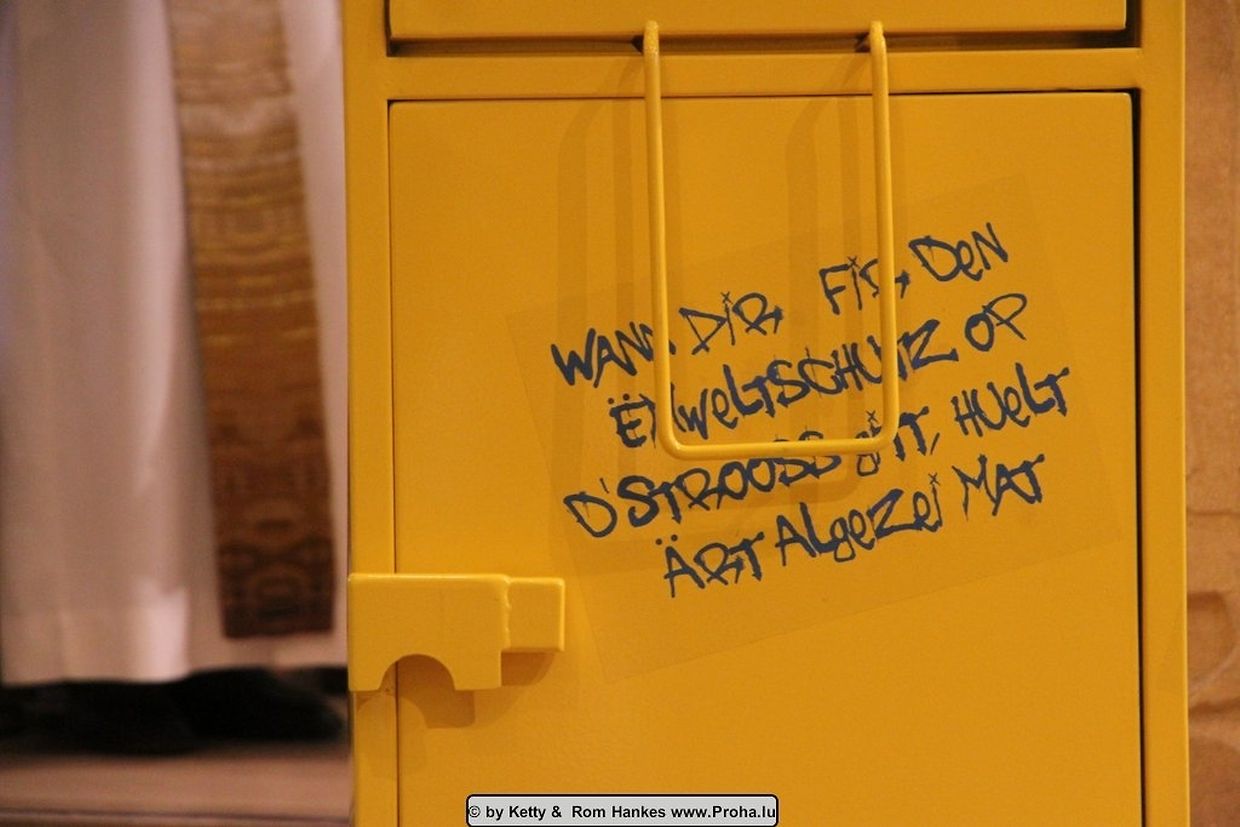 WANN DIR FIR DEN
ËMWELTSCHUTZ OP
D'STROOSS GITT, HUELT
ÄRT ALGEZEI MAT
© by Ketty & Rom Hankes www.Proha.lu